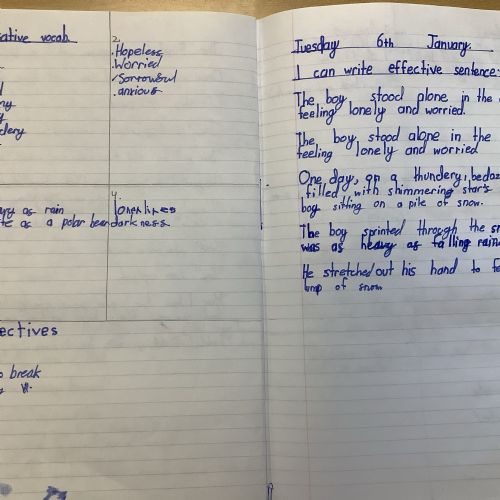 ative vocab
2.
. Hopeless
. Worried
Sorrowful
. anxious
as rain
te as a polar bear
4.
lonerlines
darkness
ectives
break
Tuesday 6th January.
I can write effective sentence
The boy stood alone in the
feeling lonely and worried.
The boy stood alone in the
feeling lonely and worried
One day, on a thundery, bedaz
filled with shimmering stars
boy sitting on a pile of snow.
The boy sprinted through the sn
was as heavy as falling rain
He stretched out his hand to fe
of snow